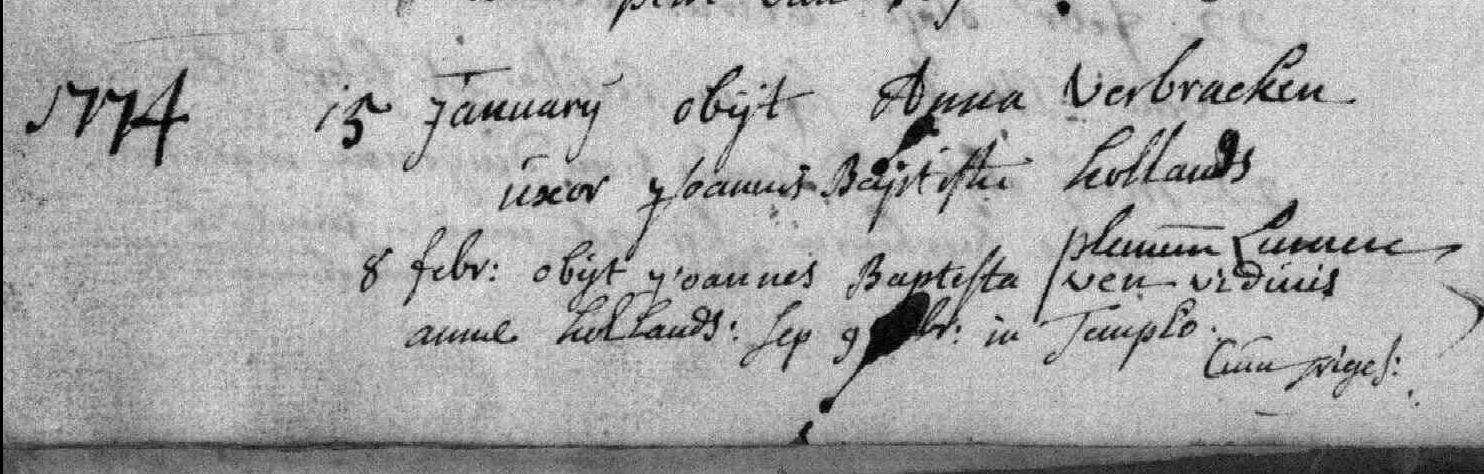 1774 15 January obijt Anna Verbraeken
uxor Joannis Baptistæ hollands
8 febr: obijt Joannes Baptista
plenum Lumen
annæ hollands: sep 9 in Templo.
Cum